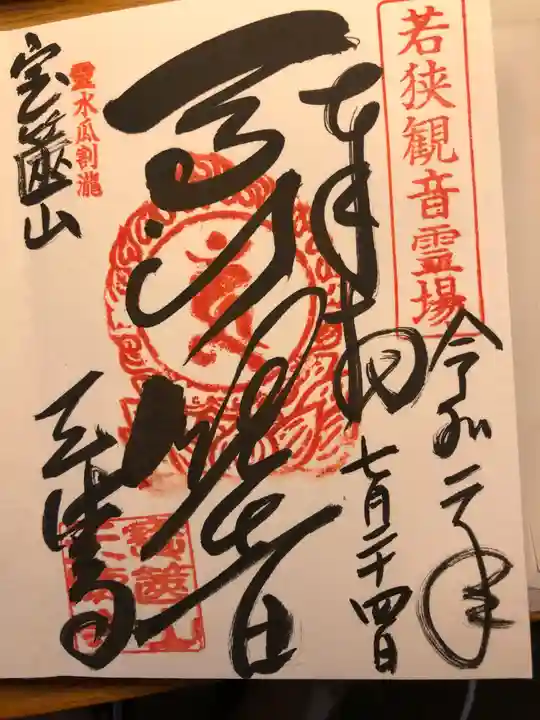 若狭観音霊場
令和二年
七月二十四日
奉拝
霊水瓜割瀧
宝篋山
天徳寺